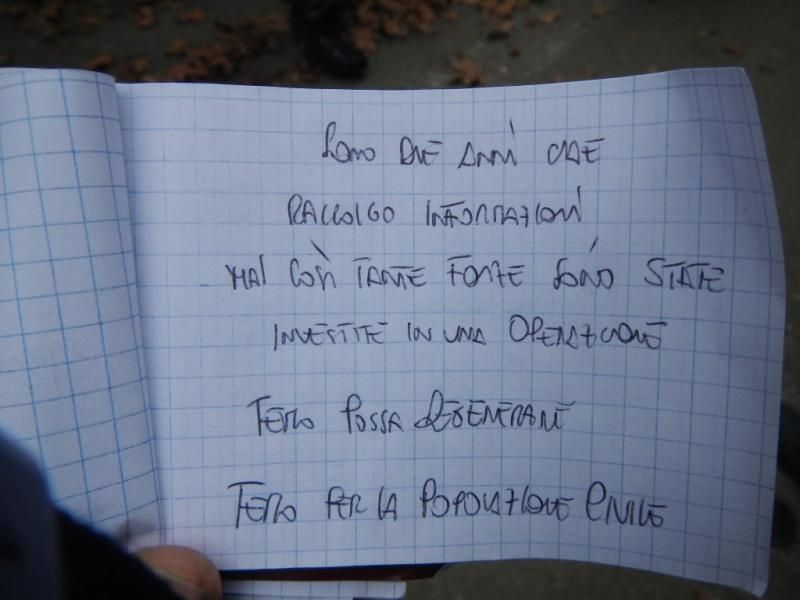 SONO DUE ANNI CHE
RACCOLGO INFORMAZIONI
MAI COSÌ TANTE FORZE SONO STATE
INVESTITE IN UNA OPERAZIONE
TEMO POSSA DEGENERARE
TEMO PER LA POPOLAZIONE CIVILE